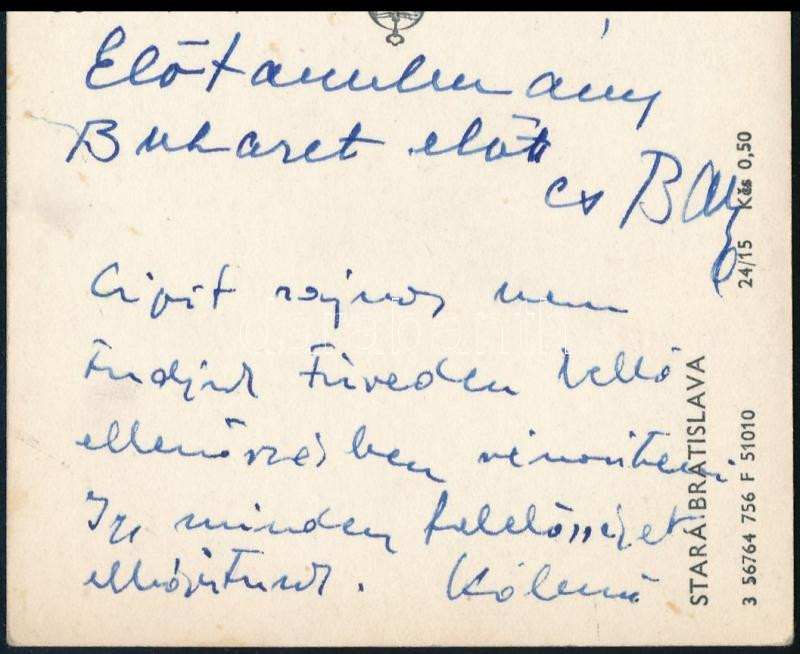 Előtanulmány
Bukarest előtt
és
Cipit sajnos nem
tudjuk Füreden kellő
ellenőrzésben részesíteni.
Így minden felelősséget
elhárítunk.
STARÁ BRATISLAVA
3 56764 756 F 51010
24/15 Kčs 0,50
darabanth